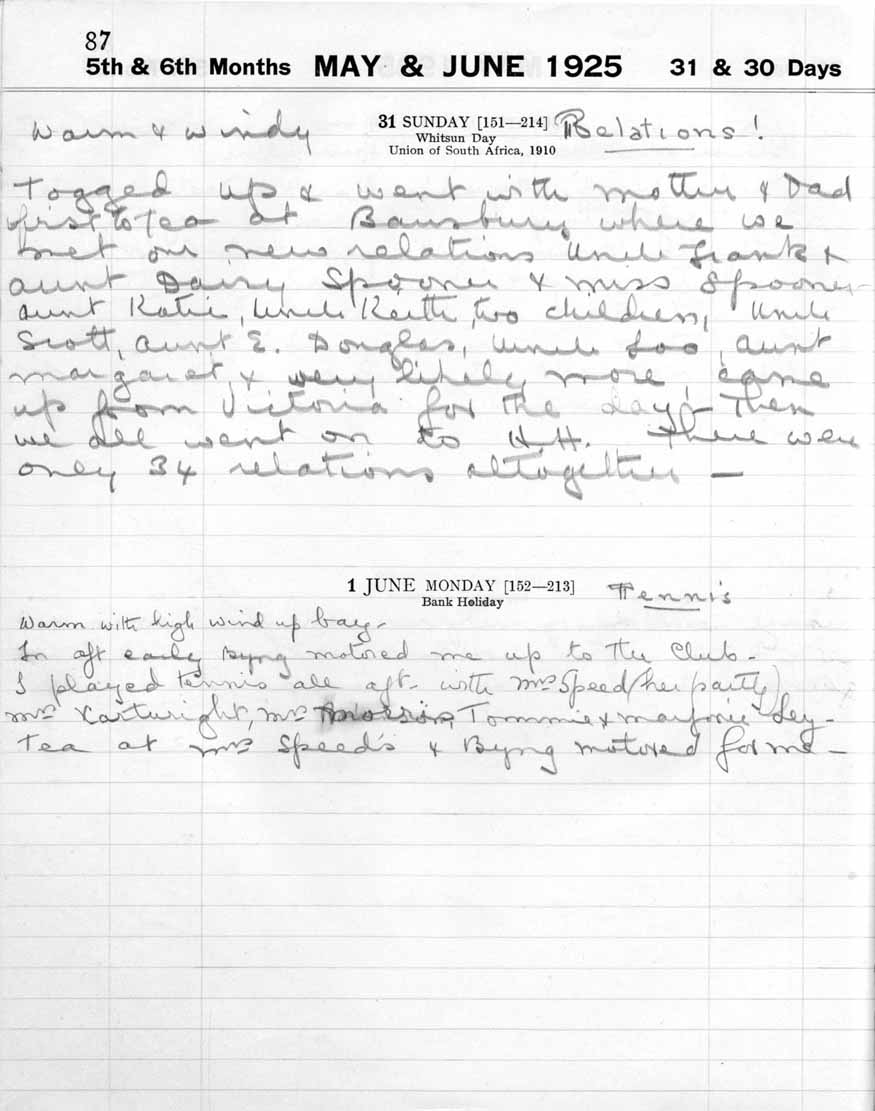 87
5th & 6th Months MAY & JUNE 1925 31 & 30 Days
Warm & windy 31 SUNDAY [151—214] Relations!
Whitsun Day
Union of South Africa, 1910
Togged up & went with mother & Dad
first to tea at where we
met our new relations Uncle Frank &
aunt Daisy Spooner & miss Spooner
aunt Katie, Uncle Keith, two children, Uncle
Scott, aunt E. Douglas, Uncle Loo, aunt
margaret, & very likely more, came
up from Victoria for the day - Then
we all went on to H.H. There were
only 34 relations altogether —
1 JUNE MONDAY [152—213] Tennis
Bank Holiday
Warm with high wind up bay -
In aft early Byng motored me up to the Club -
I played tennis all aft. with Mrs Speed (her party)
mrs Kartwright, mrs Tommie & marjorie Ley -
Tea at mrs Speed's & Byng motored for me —